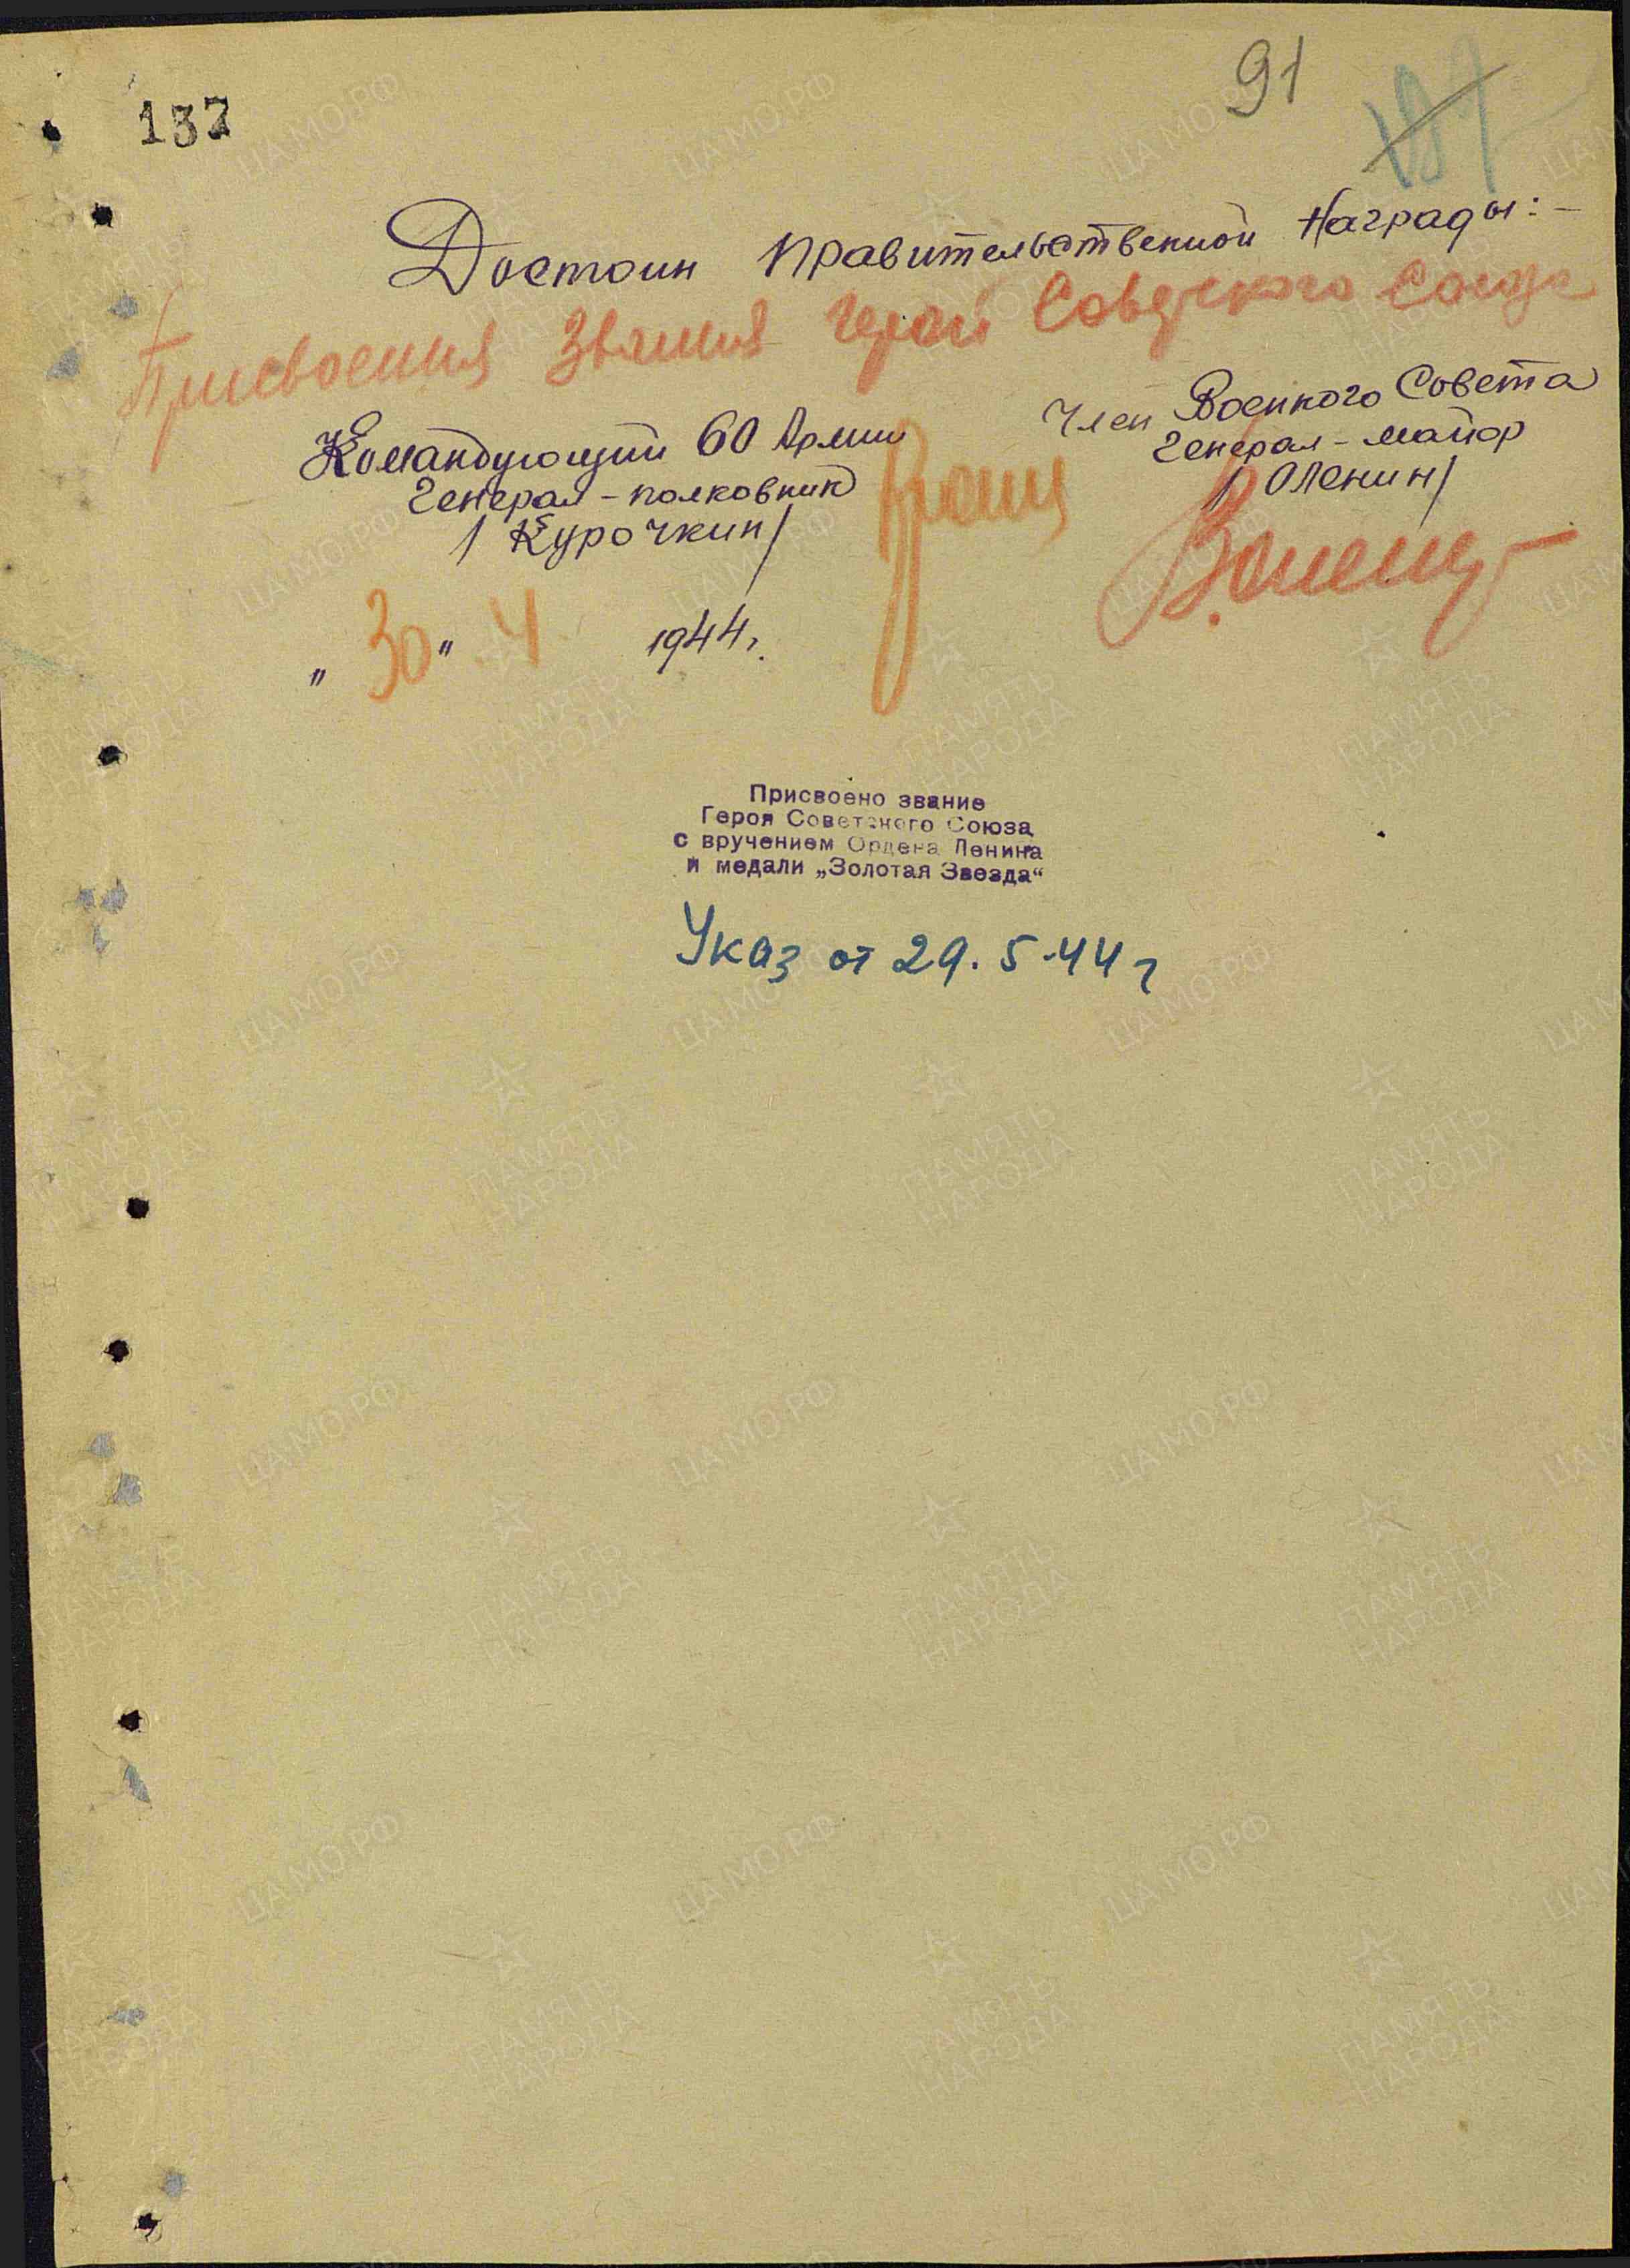 137
91
Достоин правительственной Награды:-
Присвоения звания герой Советского Союза
Командующий 60 Армии
Генерал-полковник
/ Курочкин /
Член Военного Совета
Генерал-майор
/ Оленин /
"30" 4 1944 г.
Присвоено звание
Героя Советского Союза
с вручением Ордена Ленина
и медали „Золотая Звезда“
Указ от 29.5.44 г
ЦАМО.РФ
ПАМЯТЬ
НАРОДА